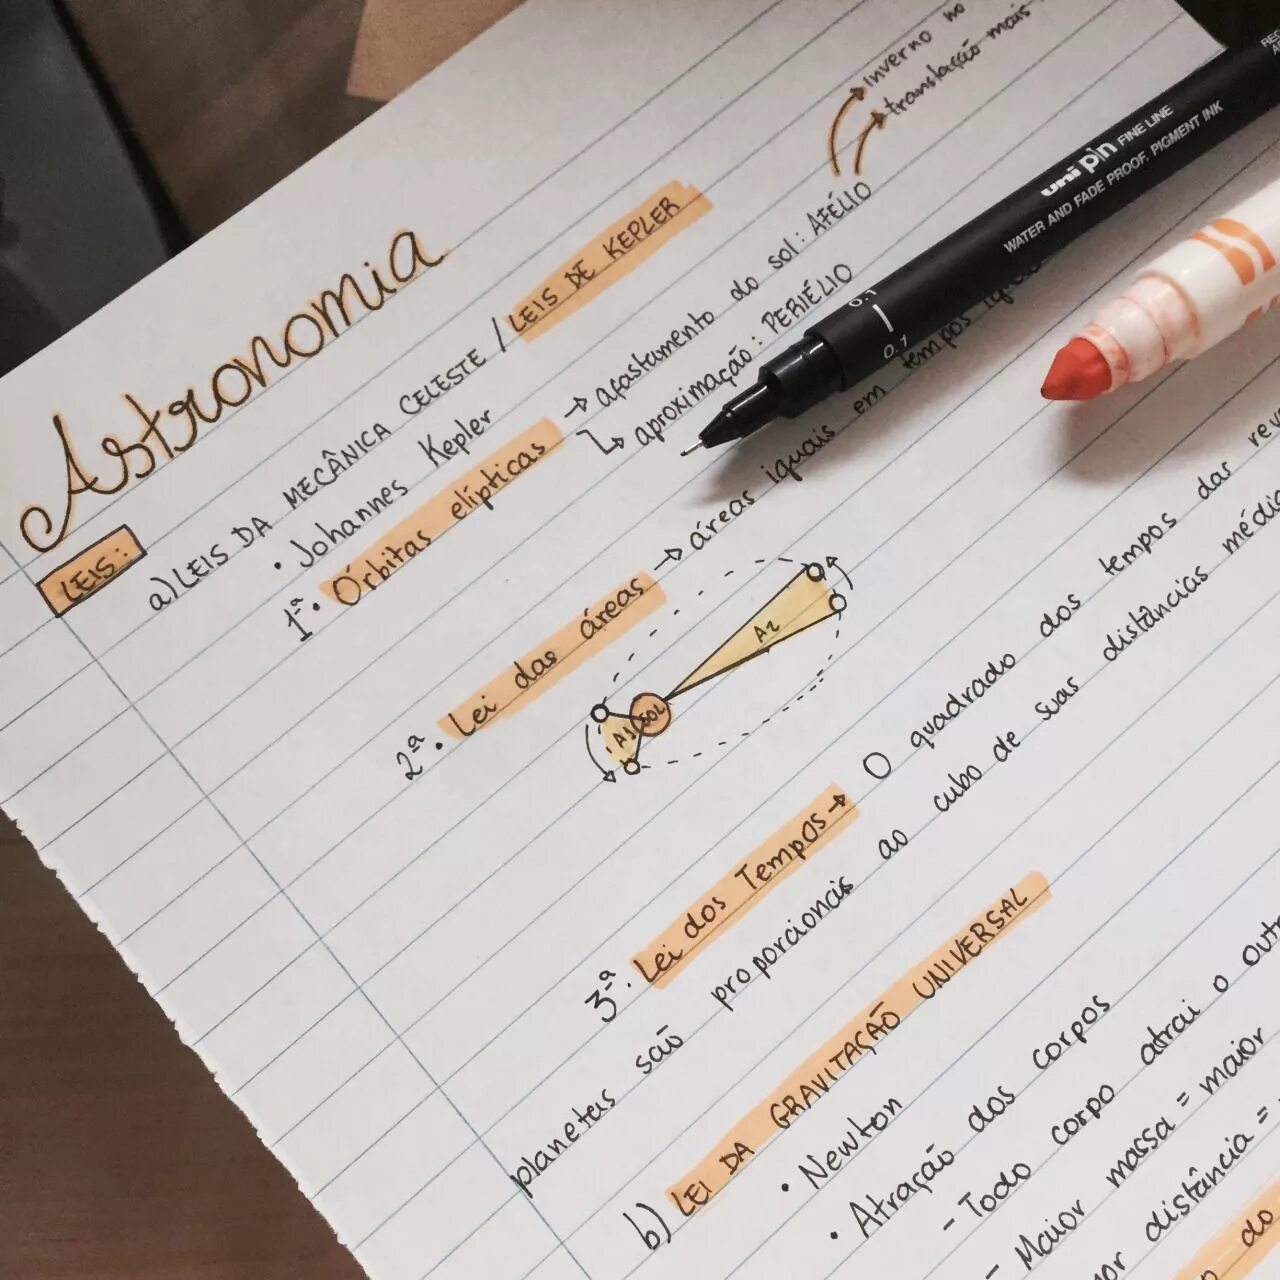 inverno no
translação mais
Astronomia
LEIS:
a) LEIS DA MECÂNICA CELESTE / LEIS DE KEPLER
• Johannes Kepler
1ª • Órbitas elípticas → afastamento do sol: AFÉLIO
aproximação: PERIÉLIO
2ª • Lei das áreas → áreas iguais em tempos
A2
SOL
A1
3ª • Lei dos Tempos → O quadrado dos tempos das
planetas são proporcionais ao cubo de suas distâncias
b) LEI DA GRAVITAÇÃO UNIVERSAL
• Newton
• Atração dos corpos
- Todo corpo atrai o
- Maior massa = maior
distância =
do
uni pin FINE LINE
WATER AND FADE PROOF, PIGMENT INK
0.1
0.1